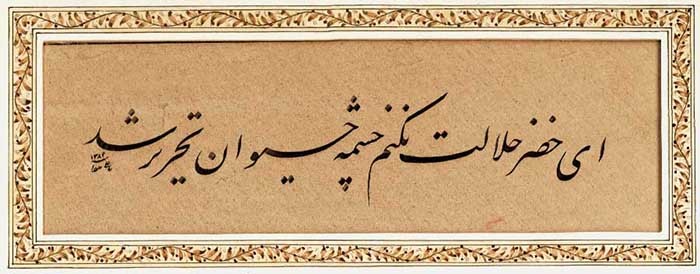 ای خضر حلالت نکنم چشمه حیوان تحریر شد